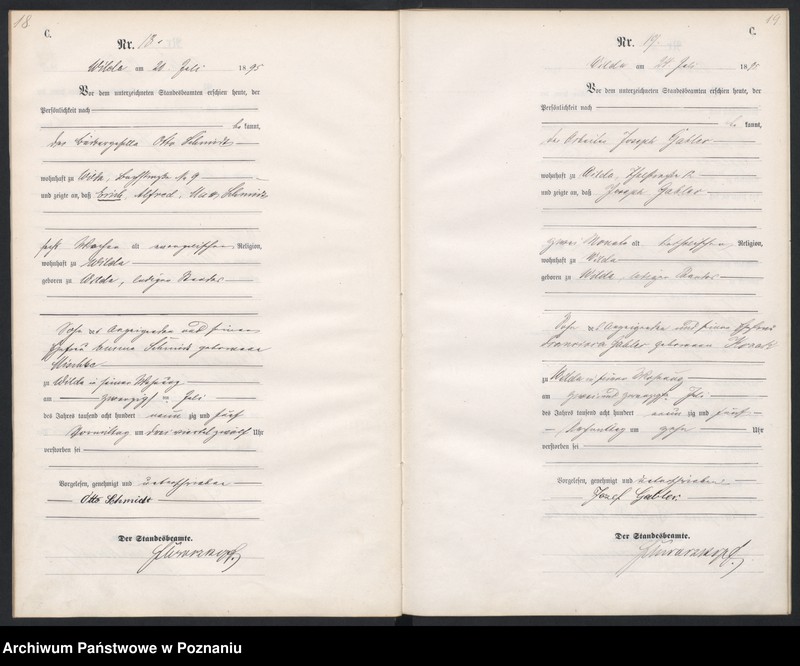 18
C.
Nr. 18.
Wilda am 20 Juli 1895
Vor dem unterzeichneten Standesbeamten erschien heute, der
Persönlichkeit nach
be kannt,
der Otto Schmidt
wohnhaft zu Wilda, 9
und zeigte an, daß Erich, Alfred, Max, Schmidt
sechs Wochen alt evangelischer Religion,
wohnhaft zu Wilda
geboren zu Wilda, ledigen Standes
Sohn des Anzeigenden und seiner
Ehefrau Emma Schmidt geborenen
zu Wilda in seiner Wohnung
am zwanzigsten Juli
des Jahres tausend acht hundert neun zig und fünf
Vormittag um drei viertel zwölf Uhr
verstorben sei
Vorgelesen, genehmigt und unterschrieben
Otto Schmidt
Der Standesbeamte.
19
C.
Nr. 19.
Wilda am Juli 1895
Vor dem unterzeichneten Standesbeamten erschien heute, der
Persönlichkeit nach
be kannt,
der Arbeiter Joseph Gabler
wohnhaft zu Wilda,
und zeigte an, daß Joseph Gabler
zwei Monate alt katholischer Religion,
wohnhaft zu Wilda
geboren zu Wilda, ledigen Standes
Sohn des Anzeigenden und seiner Ehefrau
Franziska Gabler geborenen
zu Wilda in seiner Wohnung
am zweiundzwanzigsten Juli
des Jahres tausend acht hundert neun zig und fünf
um zehn Uhr
verstorben sei
Vorgelesen, genehmigt und unterschrieben
Josef Gabler
Der Standesbeamte.
Archiwum Państwowe w Poznaniu